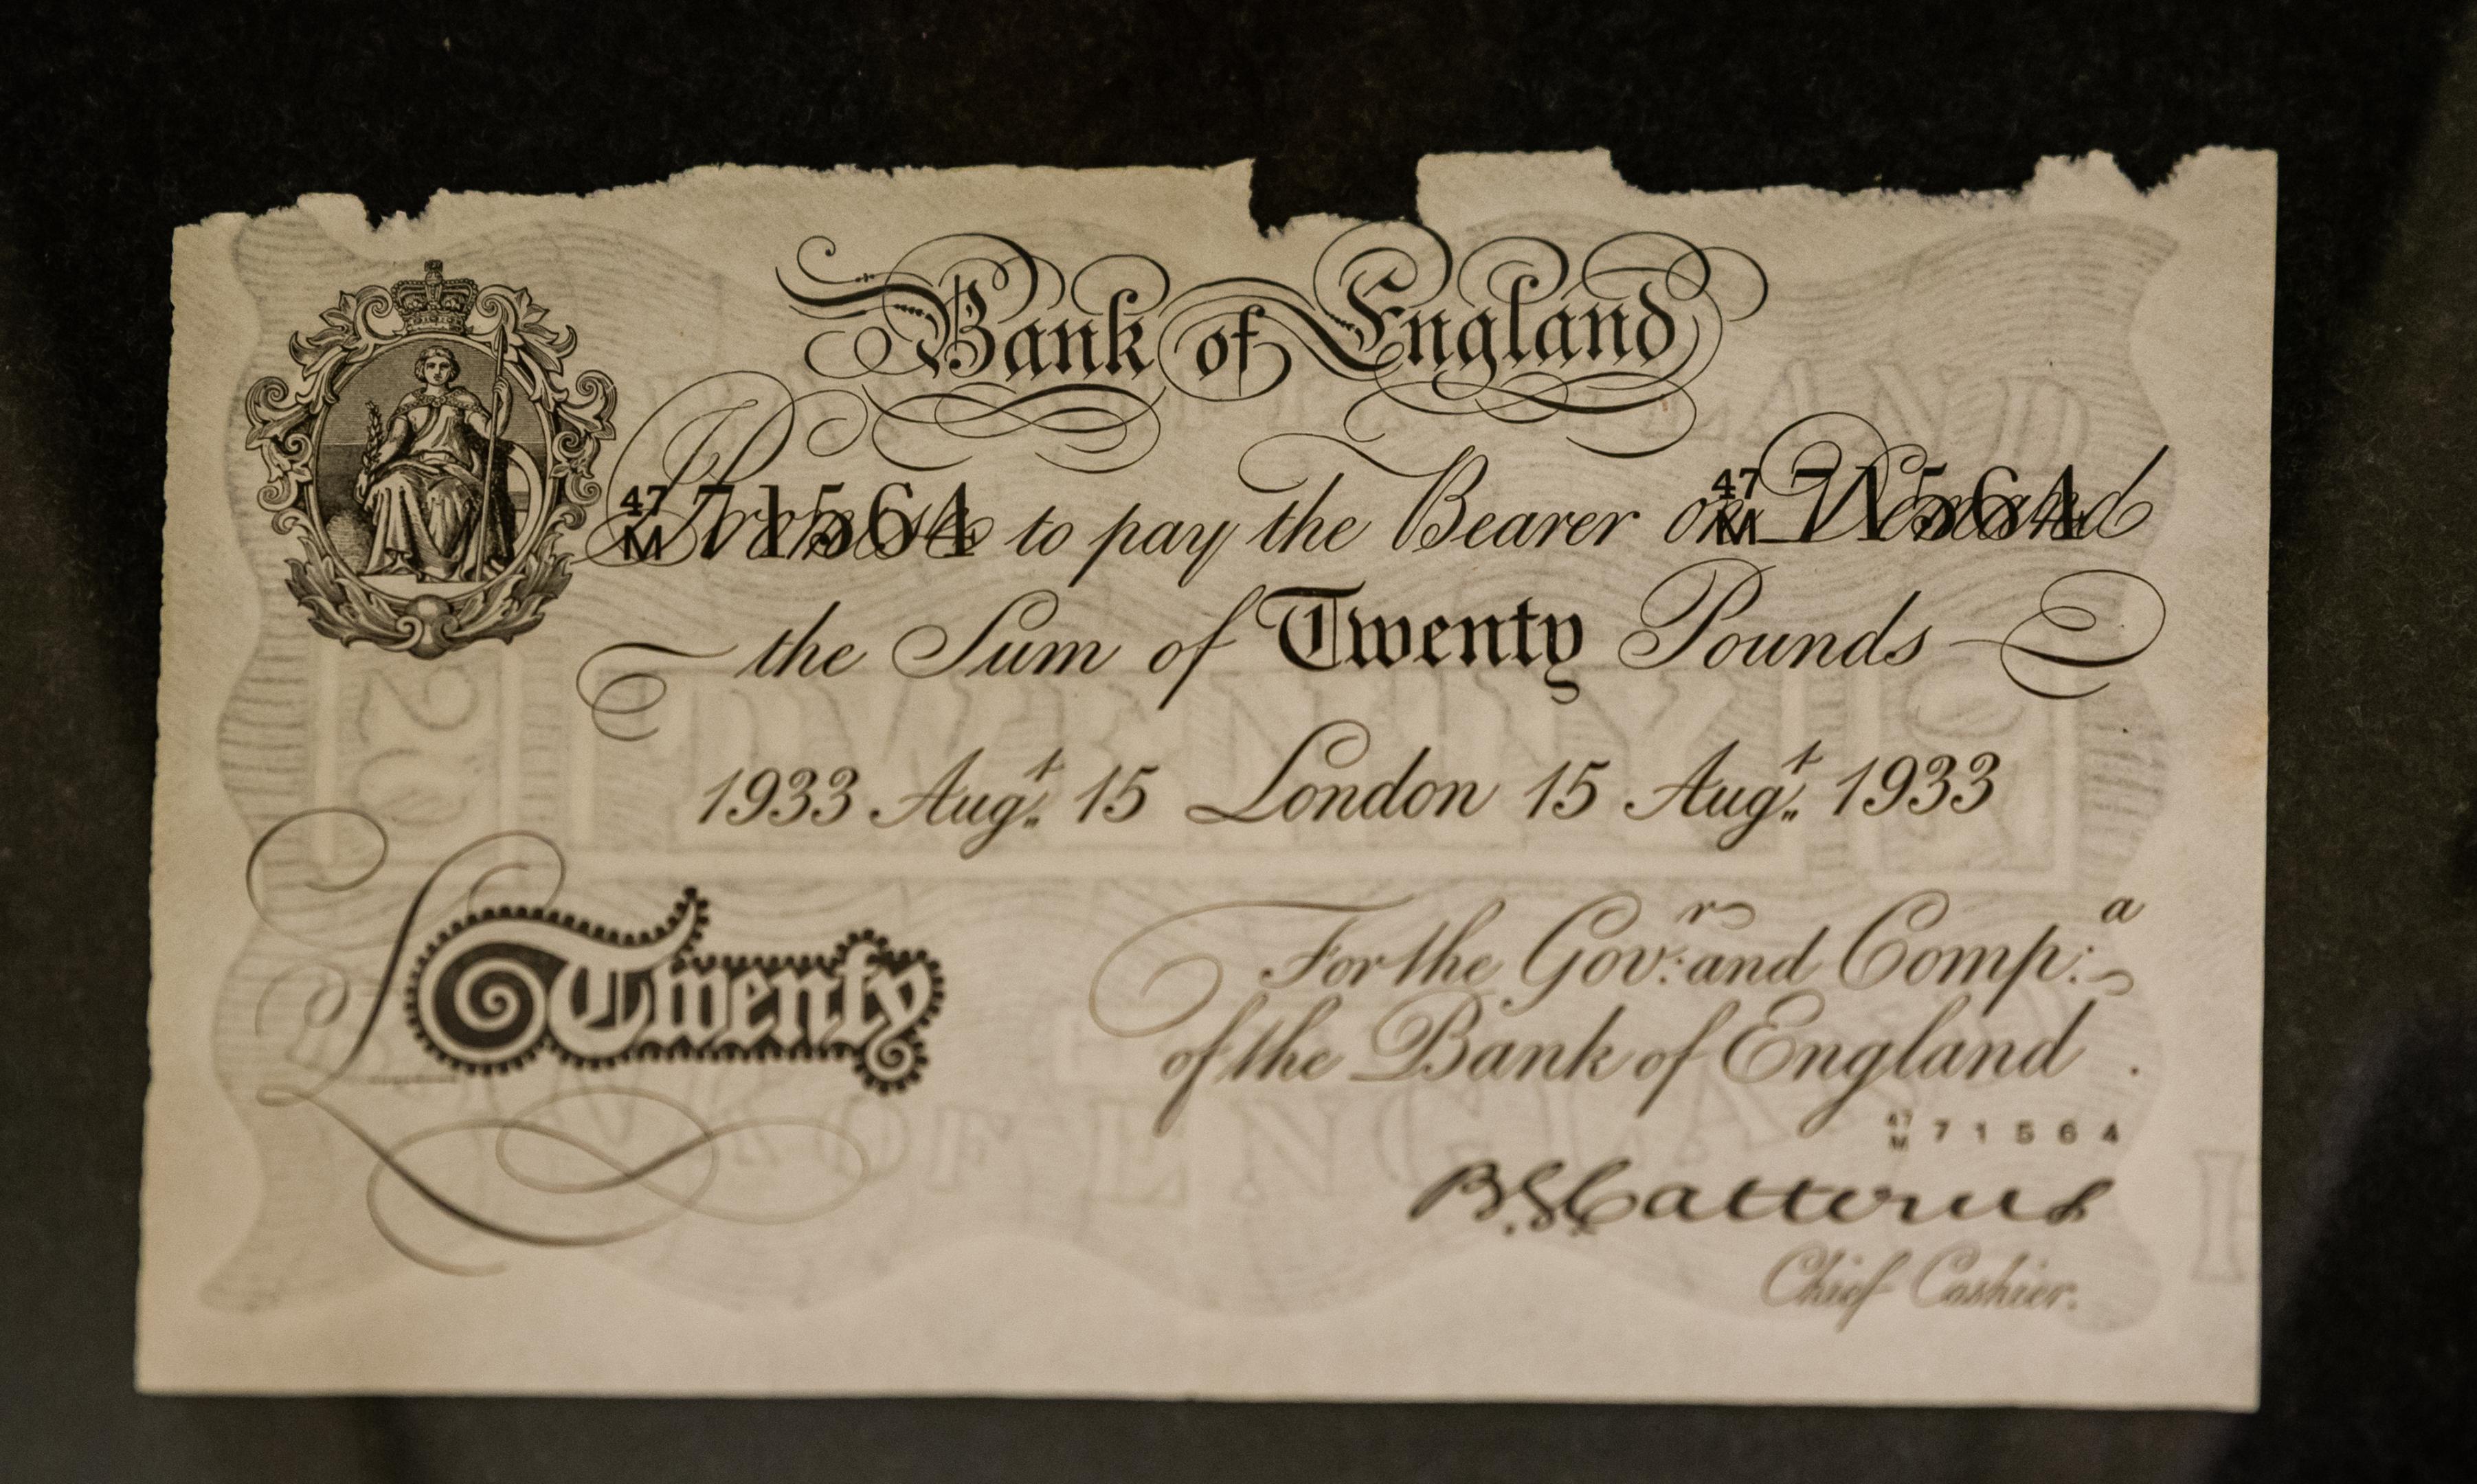 Bank of England
47 M 71564 47 M 71564
I Promise to pay the Bearer on Demand
the Sum of Twenty Pounds
1933 Augt. 15 London 15 Augt. 1933
£Twenty
For the Govr: and Compa:
of the Bank of England.
47 M 71564
B.G. Catterns
Chief Cashier.
20
TWENTY
BANK OF ENGLAND